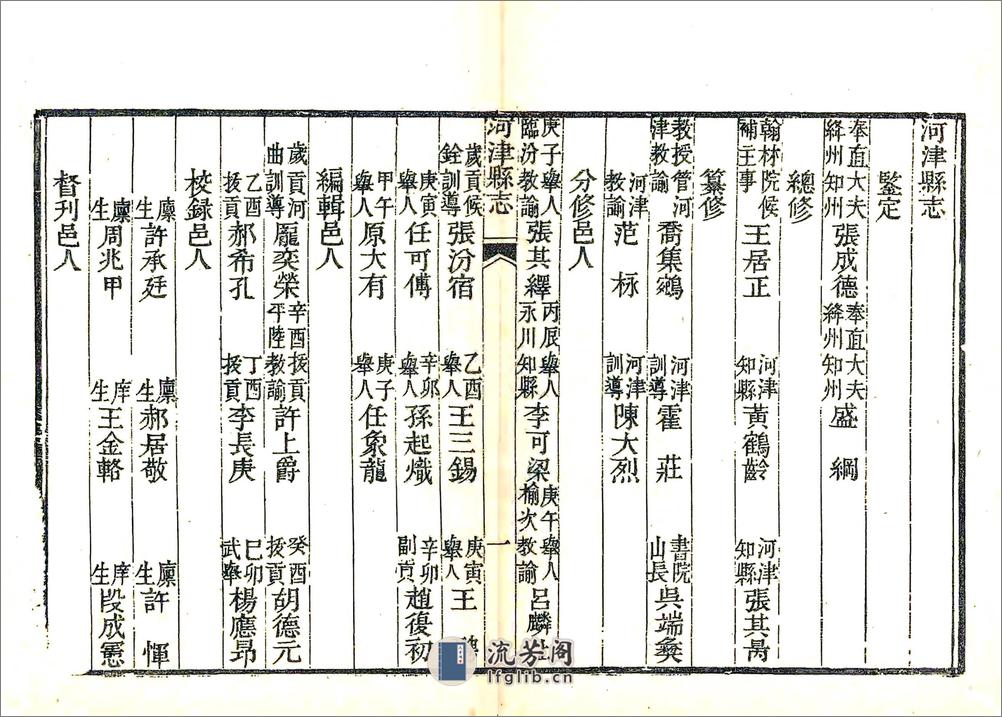 河津縣志
鑒定
奉直大夫絳州知州張成德 奉直大夫絳州知州盛綱
總修
翰林院候補主事王居正 河津知縣黃鶴齡 河津知縣張其昺
纂修
教授管河津教諭喬集鵷 河津訓導霍莊 書院山長吳端彝
河津教諭范栐 河津訓導陳大烈
分修邑人
庚子舉人臨汾教諭張其繹 丙辰舉人永川知縣李可梁 庚午舉人榆次教諭呂麟
河津縣志 一
歲貢候銓訓導張汾宿 乙酉舉人王三錫 庚寅舉人王
庚寅舉人任可傅 辛卯舉人孫起熾 辛卯副貢趙復初
甲午舉人原大有 庚子舉人任象龍
編輯邑人
歲貢河曲訓導龐奕榮 辛酉拔貢平陸教諭許上爵 癸酉拔貢胡德元
乙酉拔貢郝希孔 丁酉拔貢李長庚 己卯武舉楊應昂
校録邑人
廩生許承廷 廩生郝居敬 廩生許惲
廩生周兆甲 庠生王金輅 庠生段成憲
督刊邑人
流芳阁
lfglib.cn